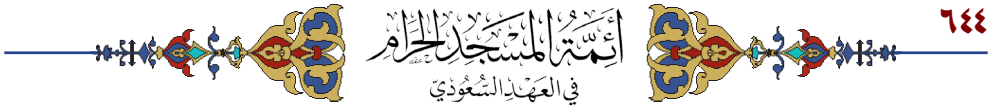 ٦٤٤
أَئِمَّةُ المَسْجِدِ الحَرَامِ
في العَهْدِ السُّعُودِيّ